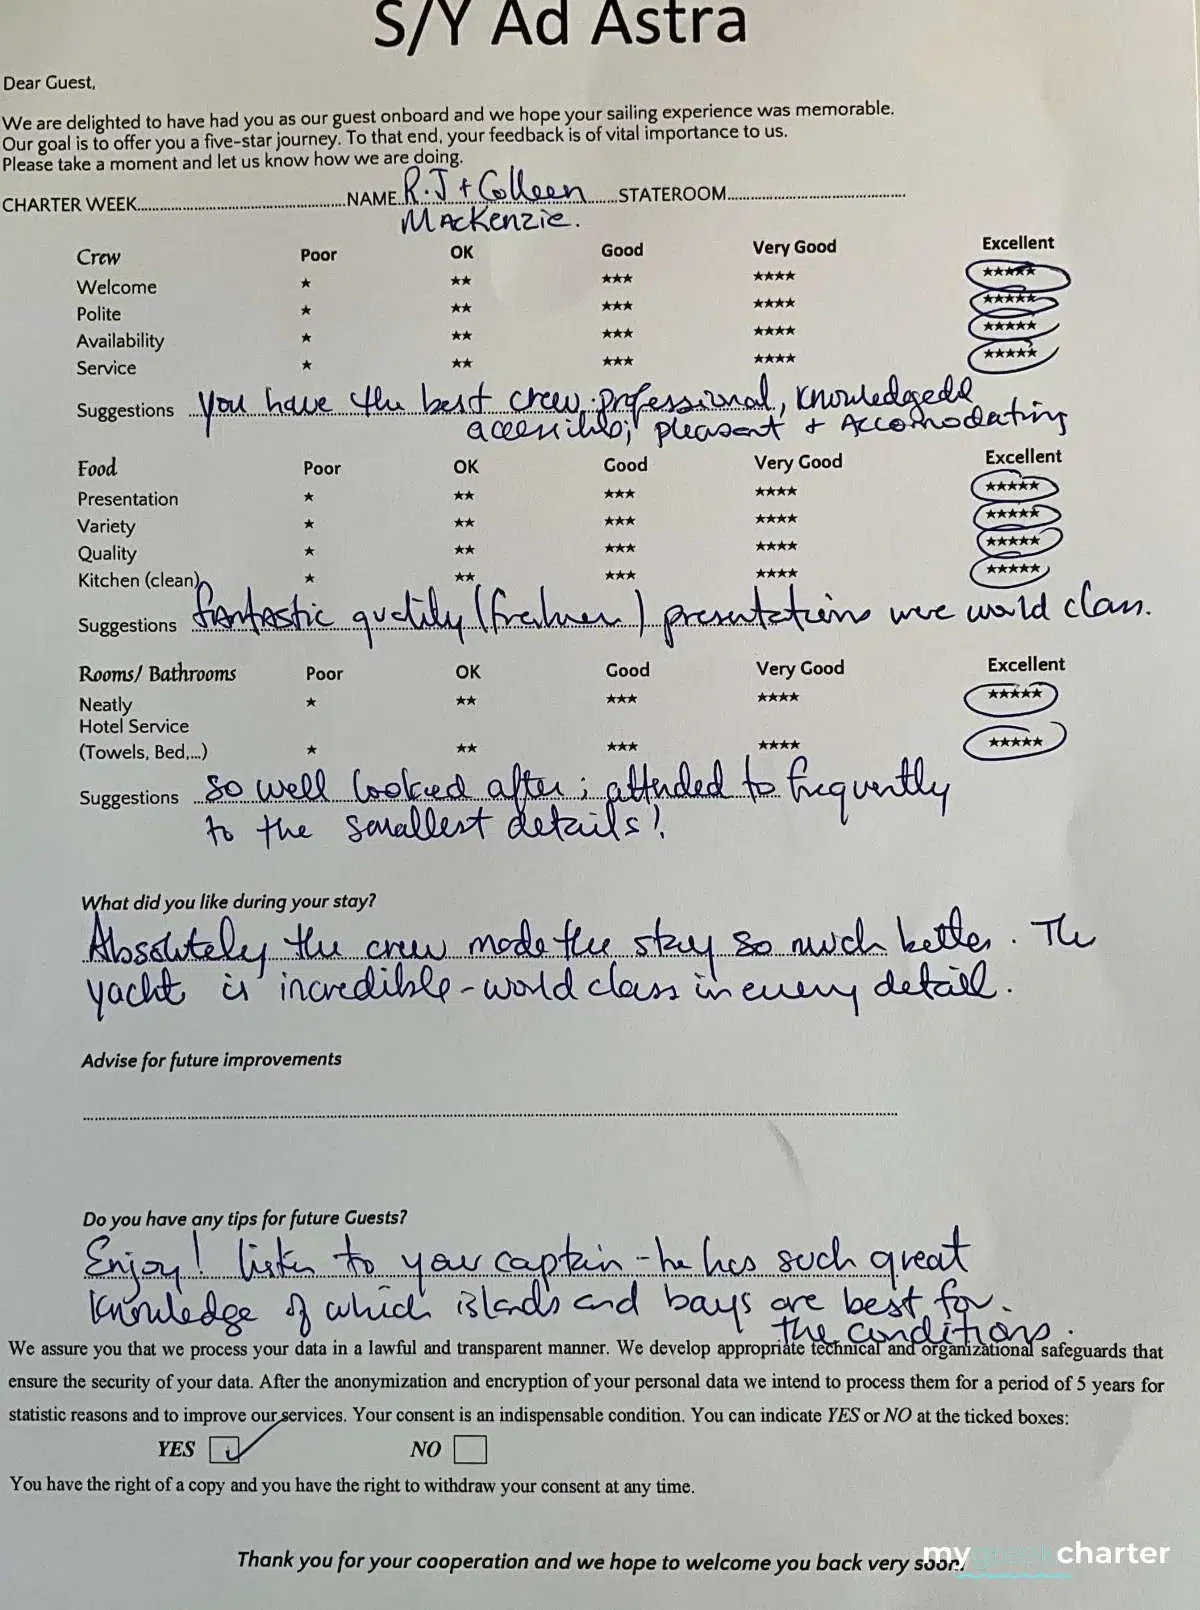 S/Y Ad Astra
Dear Guest,
We are delighted to have had you as our guest onboard and we hope your sailing experience was memorable.
Our goal is to offer you a five-star journey. To that end, your feedback is of vital importance to us.
Please take a moment and let us know how we are doing.
CHARTER WEEK.......NAME R.J + Colleen.......STATEROOM.......
MacKenzie.
Crew Poor OK Good Very Good Excellent
Welcome ★ ★★ ★★★ ★★★★ ★★★★★
Polite ★ ★★ ★★★ ★★★★ ★★★★★
Availability ★ ★★ ★★★ ★★★★ ★★★★★
Service ★ ★★ ★★★ ★★★★ ★★★★★
Suggestions You have the best crew; professional,
accessible; pleasant + Accomodating
Food Poor OK Good Very Good Excellent
Presentation ★ ★★ ★★★ ★★★★ ★★★★★
Variety ★ ★★ ★★★ ★★★★ ★★★★★
Quality ★ ★★ ★★★ ★★★★ ★★★★★
Kitchen (clean) ★ ★★ ★★★ ★★★★ ★★★★★
Suggestions fantastic quality ( ) presentations were world class.
Rooms/ Bathrooms Poor OK Good Very Good Excellent
Neatly ★ ★★ ★★★ ★★★★ ★★★★★
Hotel Service
(Towels, Bed,...) ★ ★★ ★★★ ★★★★ ★★★★★
Suggestions So well looked after; attended to frequently
to the smallest details!
What did you like during your stay?
Absolutely the crew made the stay so much better. The
yacht is incredible - world class in every detail.
Advise for future improvements
Do you have any tips for future Guests?
Enjoy! listen to your captain - he has such great
knowledge of which islands and bays are best for
the conditions.
We assure you that we process your data in a lawful and transparent manner. We develop appropriate technical and organizational safeguards that
ensure the security of your data. After the anonymization and encryption of your personal data we intend to process them for a period of 5 years for
statistic reasons and to improve our services. Your consent is an indispensable condition. You can indicate YES or NO at the ticked boxes:
YES NO
You have the right of a copy and you have the right to withdraw your consent at any time.
Thank you for your cooperation and we hope to welcome you back very soon!
mygreekcharter